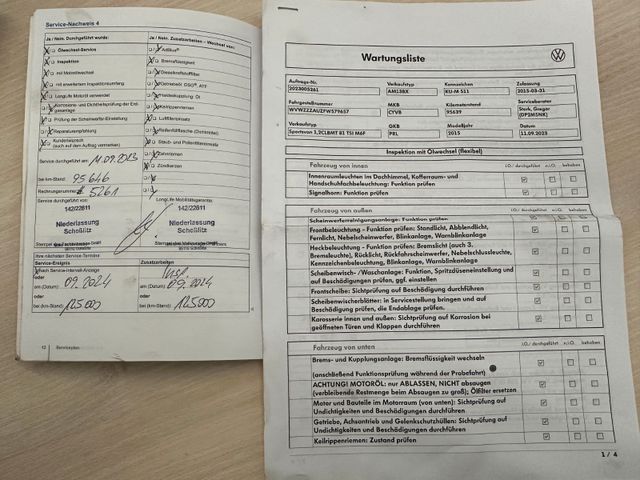 Service-Nachweis 4
Ja / Nein. Durchgeführt wurde:
Ja / Nein. Zusatzarbeiten – Wechsel von:
Ölwechsel-Service
Inspektion
mit Motorölwechsel
mit erweitertem Inspektionsumfang
LongLife Motoröl verwendet
Karosserie- und Dichtheitsprüfung der Erd-
gasanlage
Prüfung der Scheinwerfer-Einstellung
Reparaturempfehlung
Kundengespräch
(auch auf den Auftrag vermerken)
AdBlue
Bremsflüssigkeit
Dieselkraftstofffilter
Keilrippenriemen
Luftfiltereinsatz
Staub- und Pollenfiltereinsatz
Zahnriemen
Zündkerzen
Service durchgeführt am:
bei km-Stand: 95646
Rechnungsnummer: 5261
Service durchgeführt von:
LongLife Mobilitätsgarantie:
142/22811
142/22811
Niederlassung
Scheßlitz
Niederlassung
Scheßlitz
Ihre nächsten Service-Termine
Service-Ereignis
Zusatzarbeiten
Nach Service-Intervall-Anzeige
oder
am (Datum): 09.2024
oder
bei (km-Stand): 125.000
Insp.
oder
am (Datum): 09.2024
oder
bei (km-Stand): 125.000
12 Serviceplan
Wartungsliste
Auftrags-Nr. Verkaufstyp Kennzeichen Zulassung
2023005261 AM138X KU-M 511 2015-03-31
Fahrgestellnummer MKB Kilometerstand Serviceberater
WVWZZZAUZFW579657 CYVB 95639 Stark, Gregor
(DP2MSNK)
Verkaufstyp GKB Modelljahr Datum
Sportsvan 1,2CLBMT 81 TSI M6F PRL 2015 11.09.2023
Inspektion mit Ölwechsel (flexibel)
Fahrzeug von innen
i.O./ durchgeführt n.i.O. behoben
Innenraumleuchten im Dachhimmel, Kofferraum- und
Handschuhfachbeleuchtung: Funktion prüfen
Signalhorn: Funktion prüfen
Fahrzeug von außen
i.O./ durchgeführt n.i.O. behoben
Scheinwerferreinigungsanlage: Funktion prüfen
Frontbeleuchtung - Funktion prüfen: Standlicht, Abblendlicht,
Fernlicht, Nebelscheinwerfer, Blinkanlage, Warnblinkanlage
Heckbeleuchtung - Funktion prüfen: Bremslicht (auch 3.
Bremsleuchte), Rücklicht, Rückfahrscheinwerfer, Nebelschlussleuchte,
Kennzeichenbeleuchtung, Blinkanlage, Warnblinkanlage
Scheibenwisch- /Waschanlage: Funktion, Spritzdüseneinstellung und
auf Beschädigungen prüfen, ggf. einstellen
Frontscheibe: Sichtprüfung auf Beschädigung durchführen
Scheibenwischerblätter: in Servicestellung bringen und auf
Beschädigung prüfen, die Endablage prüfen.
Karosserie innen und außen: Sichtprüfung auf Korrosion bei
geöffneten Türen und Klappen durchführen
Fahrzeug von unten
i.O./ durchgeführt n.i.O. behoben
Brems- und Kupplungsanlage: Bremsflüssigkeit wechseln
(anschließend Funktionsprüfung während der Probefahrt)
ACHTUNG! MOTORÖL: nur ABLASSEN, NICHT absaugen
(verbleibende Restmenge beim Absaugen zu groß); Ölfilter ersetzen
Motor und Bauteile im Motorraum (von unten): Sichtprüfung auf
Undichtigkeiten und Beschädigungen durchführen
Getriebe, Achsantrieb und Gelenkschutzhüllen: Sichtprüfung auf
Undichtigkeiten und Beschädigungen durchführen
Keilrippenriemen: Zustand prüfen
1 / 4